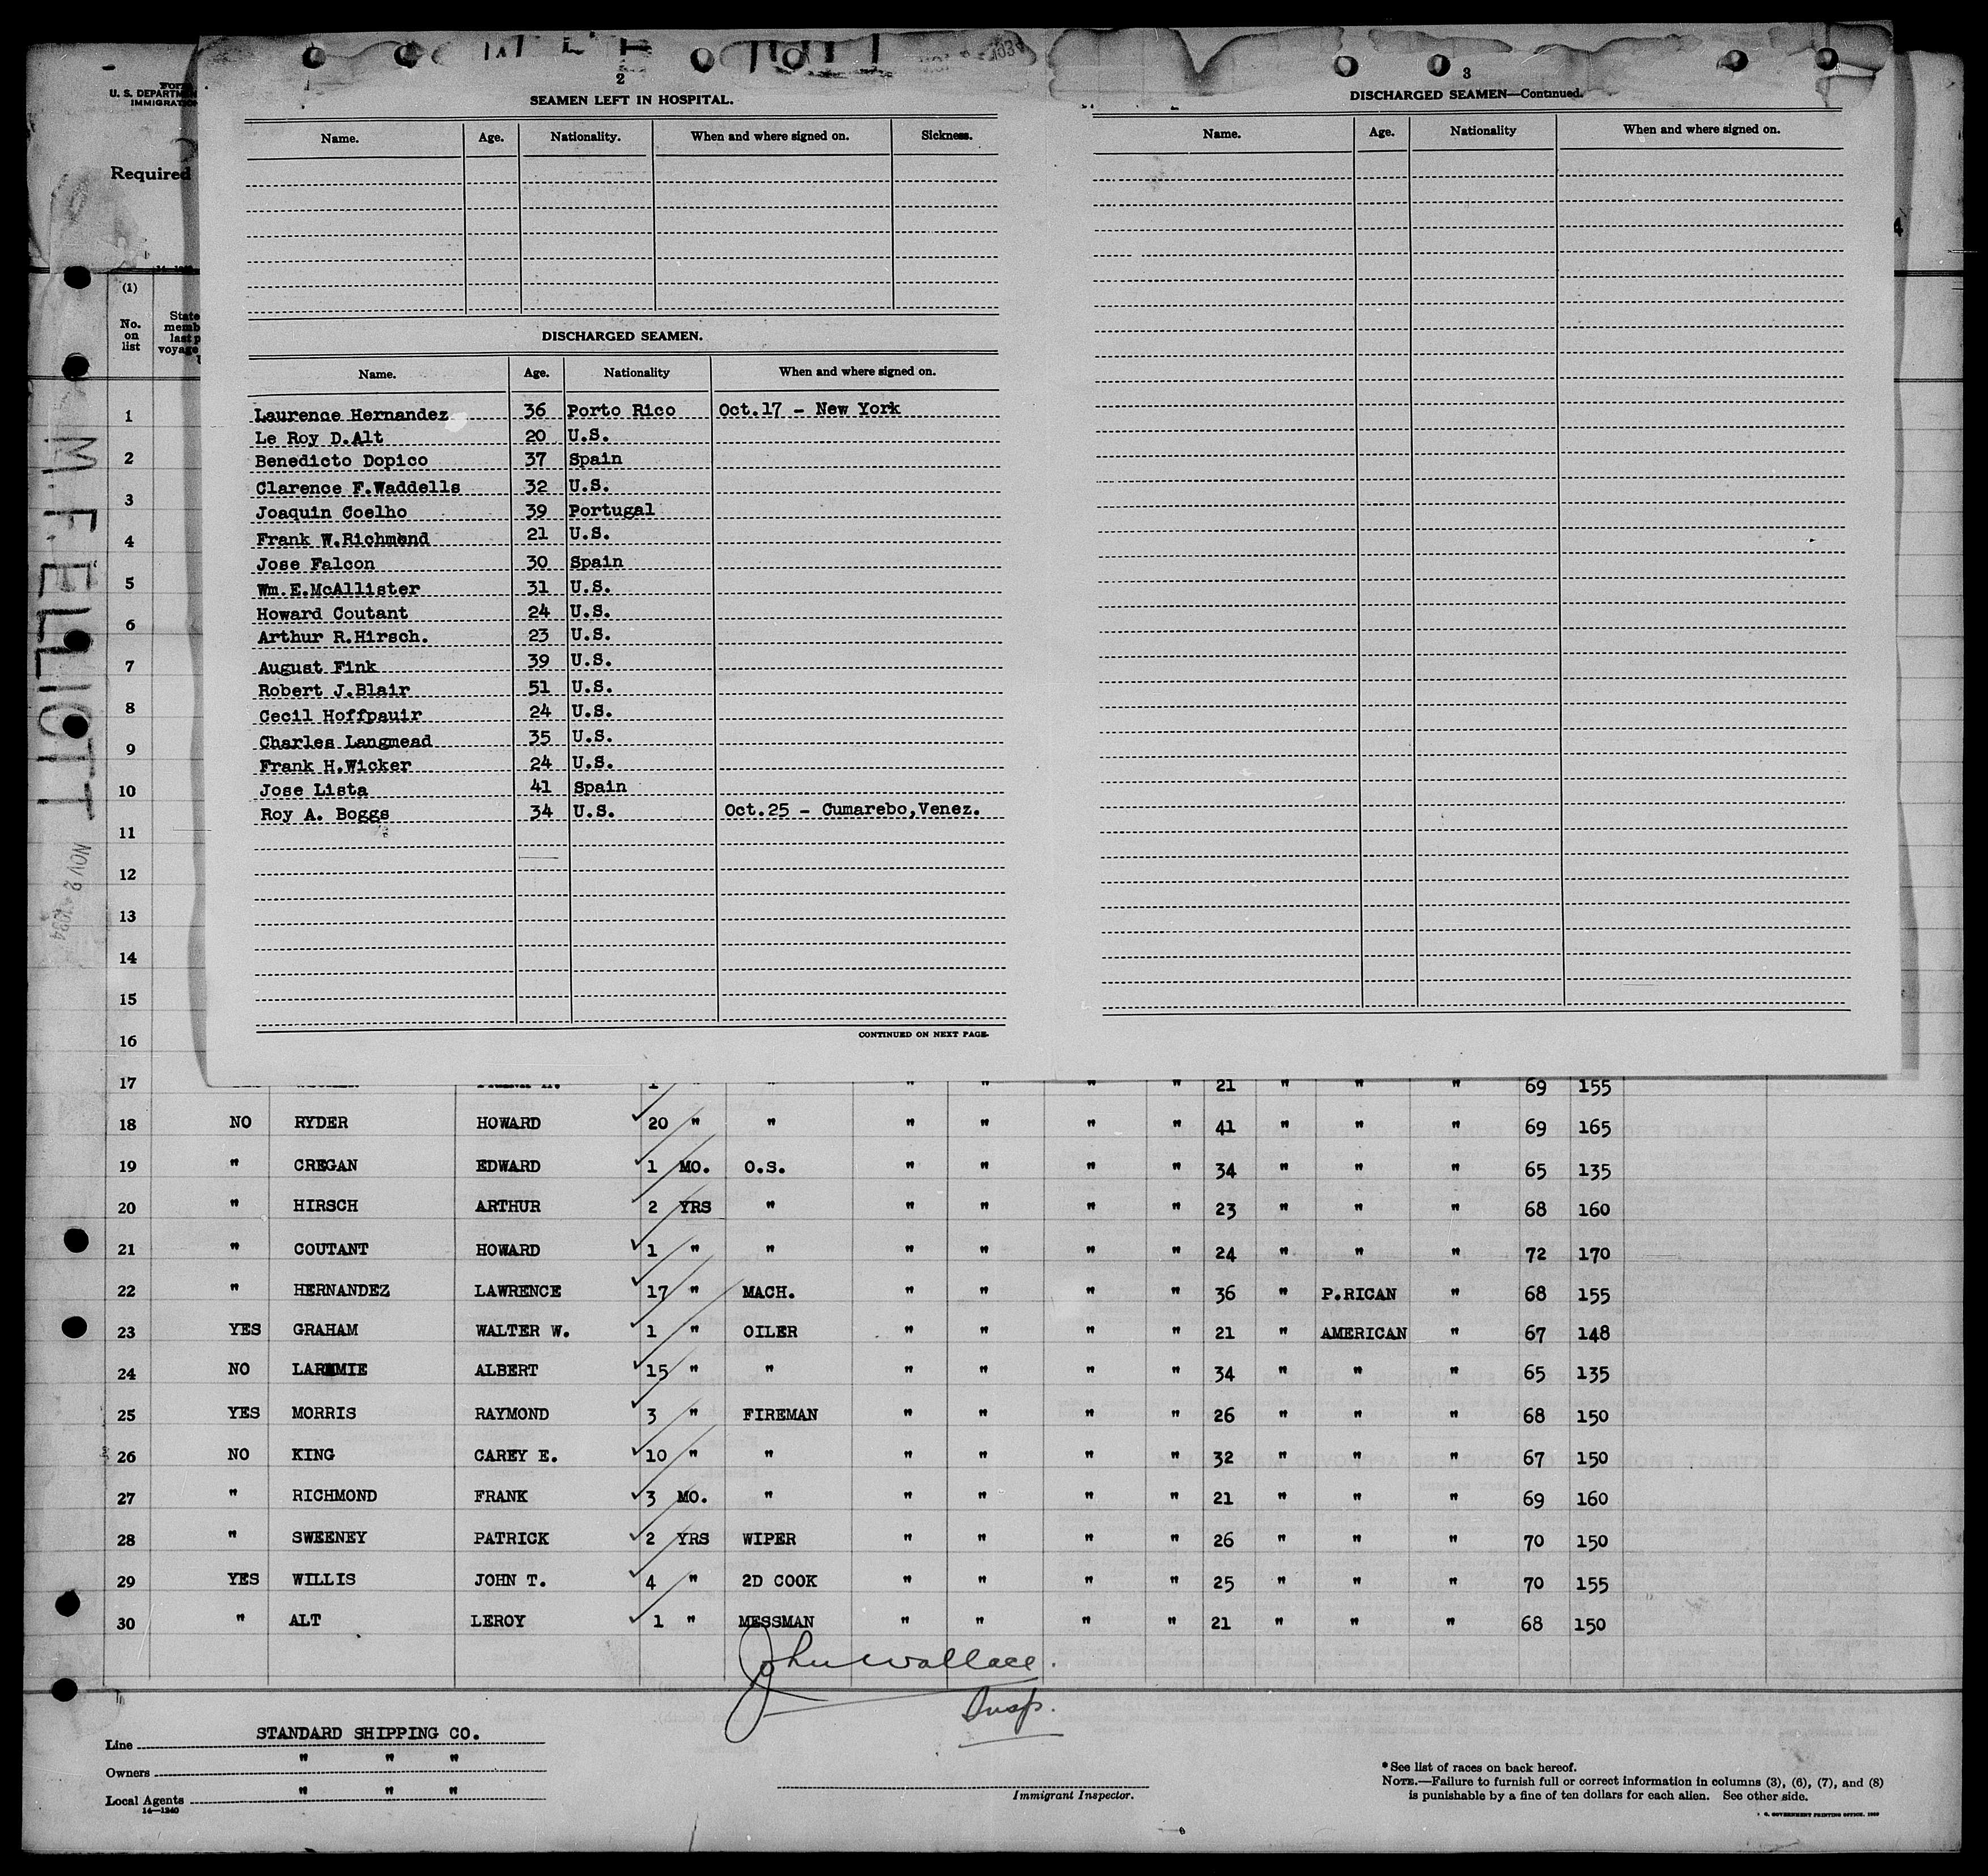 Form
U. S. DEPARTM
IMMIGRATIO
Required
(1)
No. on list
State
memb
last p
voyage
M.F. ELLIOTT
NOV 2 1934
2
SEAMEN LEFT IN HOSPITAL.
Name. Age. Nationality. When and where signed on. Sickness.
DISCHARGED SEAMEN.
Name. Age. Nationality When and where signed on.
Laurence Hernandez 36 Porto Rico Oct.17 - New York
Le Roy D.Alt 20 U.S.
Benedicto Dopico 37 Spain
Clarence F.Waddells 32 U.S.
Joaquin Coelho 39 Portugal
Frank W.Richmond 21 U.S.
Jose Falcon 30 Spain
Wm.E.McAllister 31 U.S.
Howard Coutant 24 U.S.
Arthur R.Hirsch. 23 U.S.
August Fink 39 U.S.
Robert J.Blair 51 U.S.
Cecil Hoffpauir 24 U.S.
Charles Langmead 35 U.S.
Frank H.Wicker 24 U.S.
Jose Lista 41 Spain
Roy A. Boggs 34 U.S. Oct.25 - Cumarebo,Venez.
CONTINUED ON NEXT PAGE.
3
DISCHARGED SEAMEN—Continued.
Name. Age. Nationality When and where signed on.
1
2
3
4
5
6
7
8
9
10
11
12
13
14
15
16
17 " " " " " " 21 " " " 69 155
18 NO RYDER HOWARD 20 " " " " " " 41 " " " 69 165
19 " CREGAN EDWARD 1 MO. O.S. " " " " 34 " " " 65 135
20 " HIRSCH ARTHUR 2 YRS " " " " " 23 " " " 68 160
21 " COUTANT HOWARD 1 " " " " " " 24 " " " 72 170
22 " HERNANDEZ LAWRENCE 17 " MACH. " " " " 36 " P.RICAN " 68 155
23 YES GRAHAM WALTER W. 1 " OILER " " " " 21 " AMERICAN " 67 148
24 NO LARAMIE ALBERT 15 " " " " " " 34 " " " 65 135
25 YES MORRIS RAYMOND 3 " FIREMAN " " " " 26 " " " 68 150
26 NO KING CAREY E. 10 " " " " " " 32 " " " 67 150
27 " RICHMOND FRANK 3 MO. " " " " " 21 " " " 69 160
28 " SWEENEY PATRICK 2 YRS WIPER " " " " 26 " " " 70 150
29 YES WILLIS JOHN T. 4 " 2D COOK " " " " 25 " " " 70 155
30 " ALT LEROY 1 " MESSMAN " " " " 21 " " " 68 150
John Wallace.
Insp.
Line STANDARD SHIPPING CO.
Owners " " "
Local Agents " " "
14—1240
Immigrant Inspector.
* See list of races on back hereof.
NOTE.—Failure to furnish full or correct information in columns (3), (6), (7), and (8)
is punishable by a fine of ten dollars for each alien. See other side.